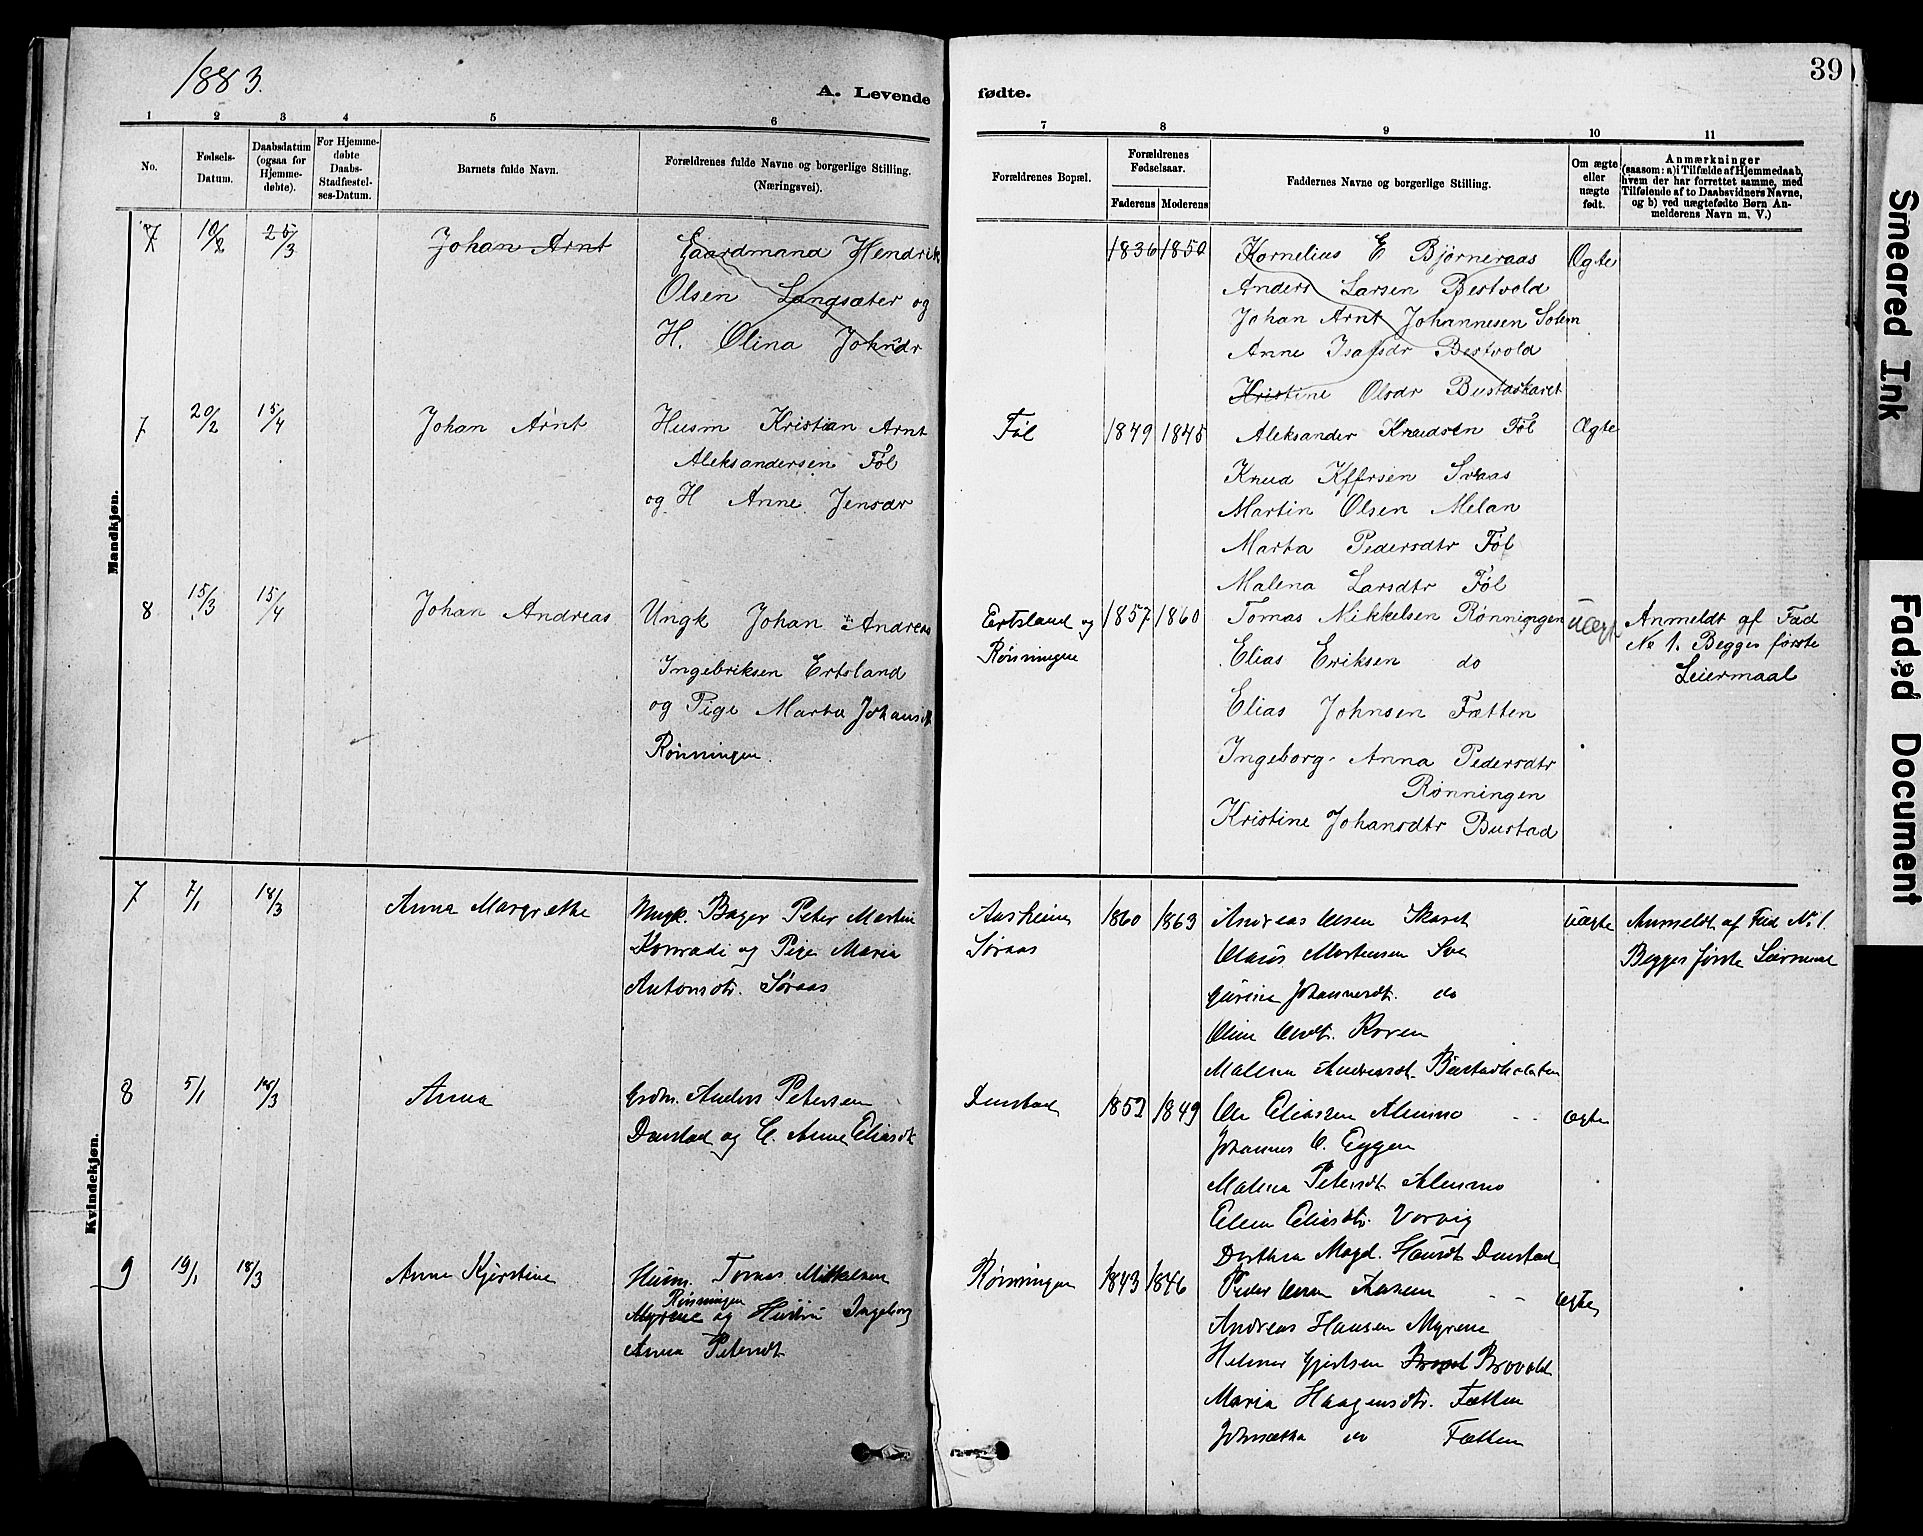 1883.
39
A. Levende fødte.
1 2 3 4 5 6 7 8 9 10 11
No.
Fødsels-Datum.
Daabsdatum (ogsaa for Hjemmedøbte).
For Hjemmedøbte Daabs-Stadfæstelses-Datum.
Barnets fulde Navn.
Forældrenes fulde Navne og borgerlige Stilling.
(Næringsvei).
Forældrenes Bopæl.
Forældrenes Fødselsaar.
Faderens Moderens
Faddernes Navne og borgerlige Stilling.
Om ægte eller uægte født.
Anmærkninger
(saasom: a) i Tilfælde af Hjemmedaab,
hvem der har forrettet samme, med
Tilføiende af to Daabsvidners Navne,
og b) ved uægtefødte Børn Anmelderens Navn m. V.)
Mandkjøn.
7 10/2 26/3 Johan Arnt
Gaardmand Hendrik
Olsen Langsæter og
H. Olina Johnsdr
1836 1850
Kornelius E Bjørneraas
Anders Larsen Bestvold
Johan Arnt Johannesen Solem
Anne Isaksdr Bestvold
Kristine Olsdr Bustadskaret
Ægte
7 20/2 15/4 Johan Arnt
Husm Kristian Arnt
Aleksandersen Føl
og H Anne Jensdr
Føl
1849 1845
Aleksander Knudsen Føl
Knud Sveaas
Martin Olsen Melan
Marta Pedersdtr Føl
Malena Larsdtr Føl
Ægte
8 15/3 15/4 Johan Andreas
Ungk Johan Andreas
Ingebriksen Ertsland
og Pige Marta Johansdt
Rønningen.
Ertsland og
Rønningen
1857 1860
Tomas Mikkelsen Rønningen
Elias Eriksen do
Elias Johnsen Fætten
Ingeborg Anna Pedersdtr
Rønningen
Kristine Johansdtr Bustad
Uægte
Anmeldt af Fad
No 1. Begges første
Leiermaal
Kvindekjøn.
7 7/1 18/3 Anna Margrethe
Ungk. Bager Peter Martin
Konradi og Pige Maria
Antonsdtr. Søraas
Aasheim
Søraas
1860 1863
Andreas Olsen Skaret
Olaus Mortensen Sve
Gurine Johannesdt. do
Oline Olsdt. Koren
Malena Andreasdt.
Uægte
Anmeldt af Fad No 1.
Begges første Leiermaal
8 5/1 18/3 Anna
Grdm. Anders Petersen
Dunstad og C. Anne Eliasdt
Dunstad
1852 1849
Ole Eliassen Alemmo
Johannes O. Eggen
Malena Petersdt. Alemmo
Elen Eliasdtr. Vorvig
Dorthea Magd. Hansdt Dunstad
Ægte
9 19/1 18/3 Anne Kjerstine
Husm. Tomas Mikkelsen
Rønningen
Myrene og Hustru Ingeborg
Anna Petersdt
Rønningen
1843 1846
Peder Olsen Aasen
Andreas Hansen Myrene
Helmer Gjertsen Brovold
Maria Haagensdtr. Fætten
Johnetta do Fætten
Ægte
Smeared Ink
Faded Document